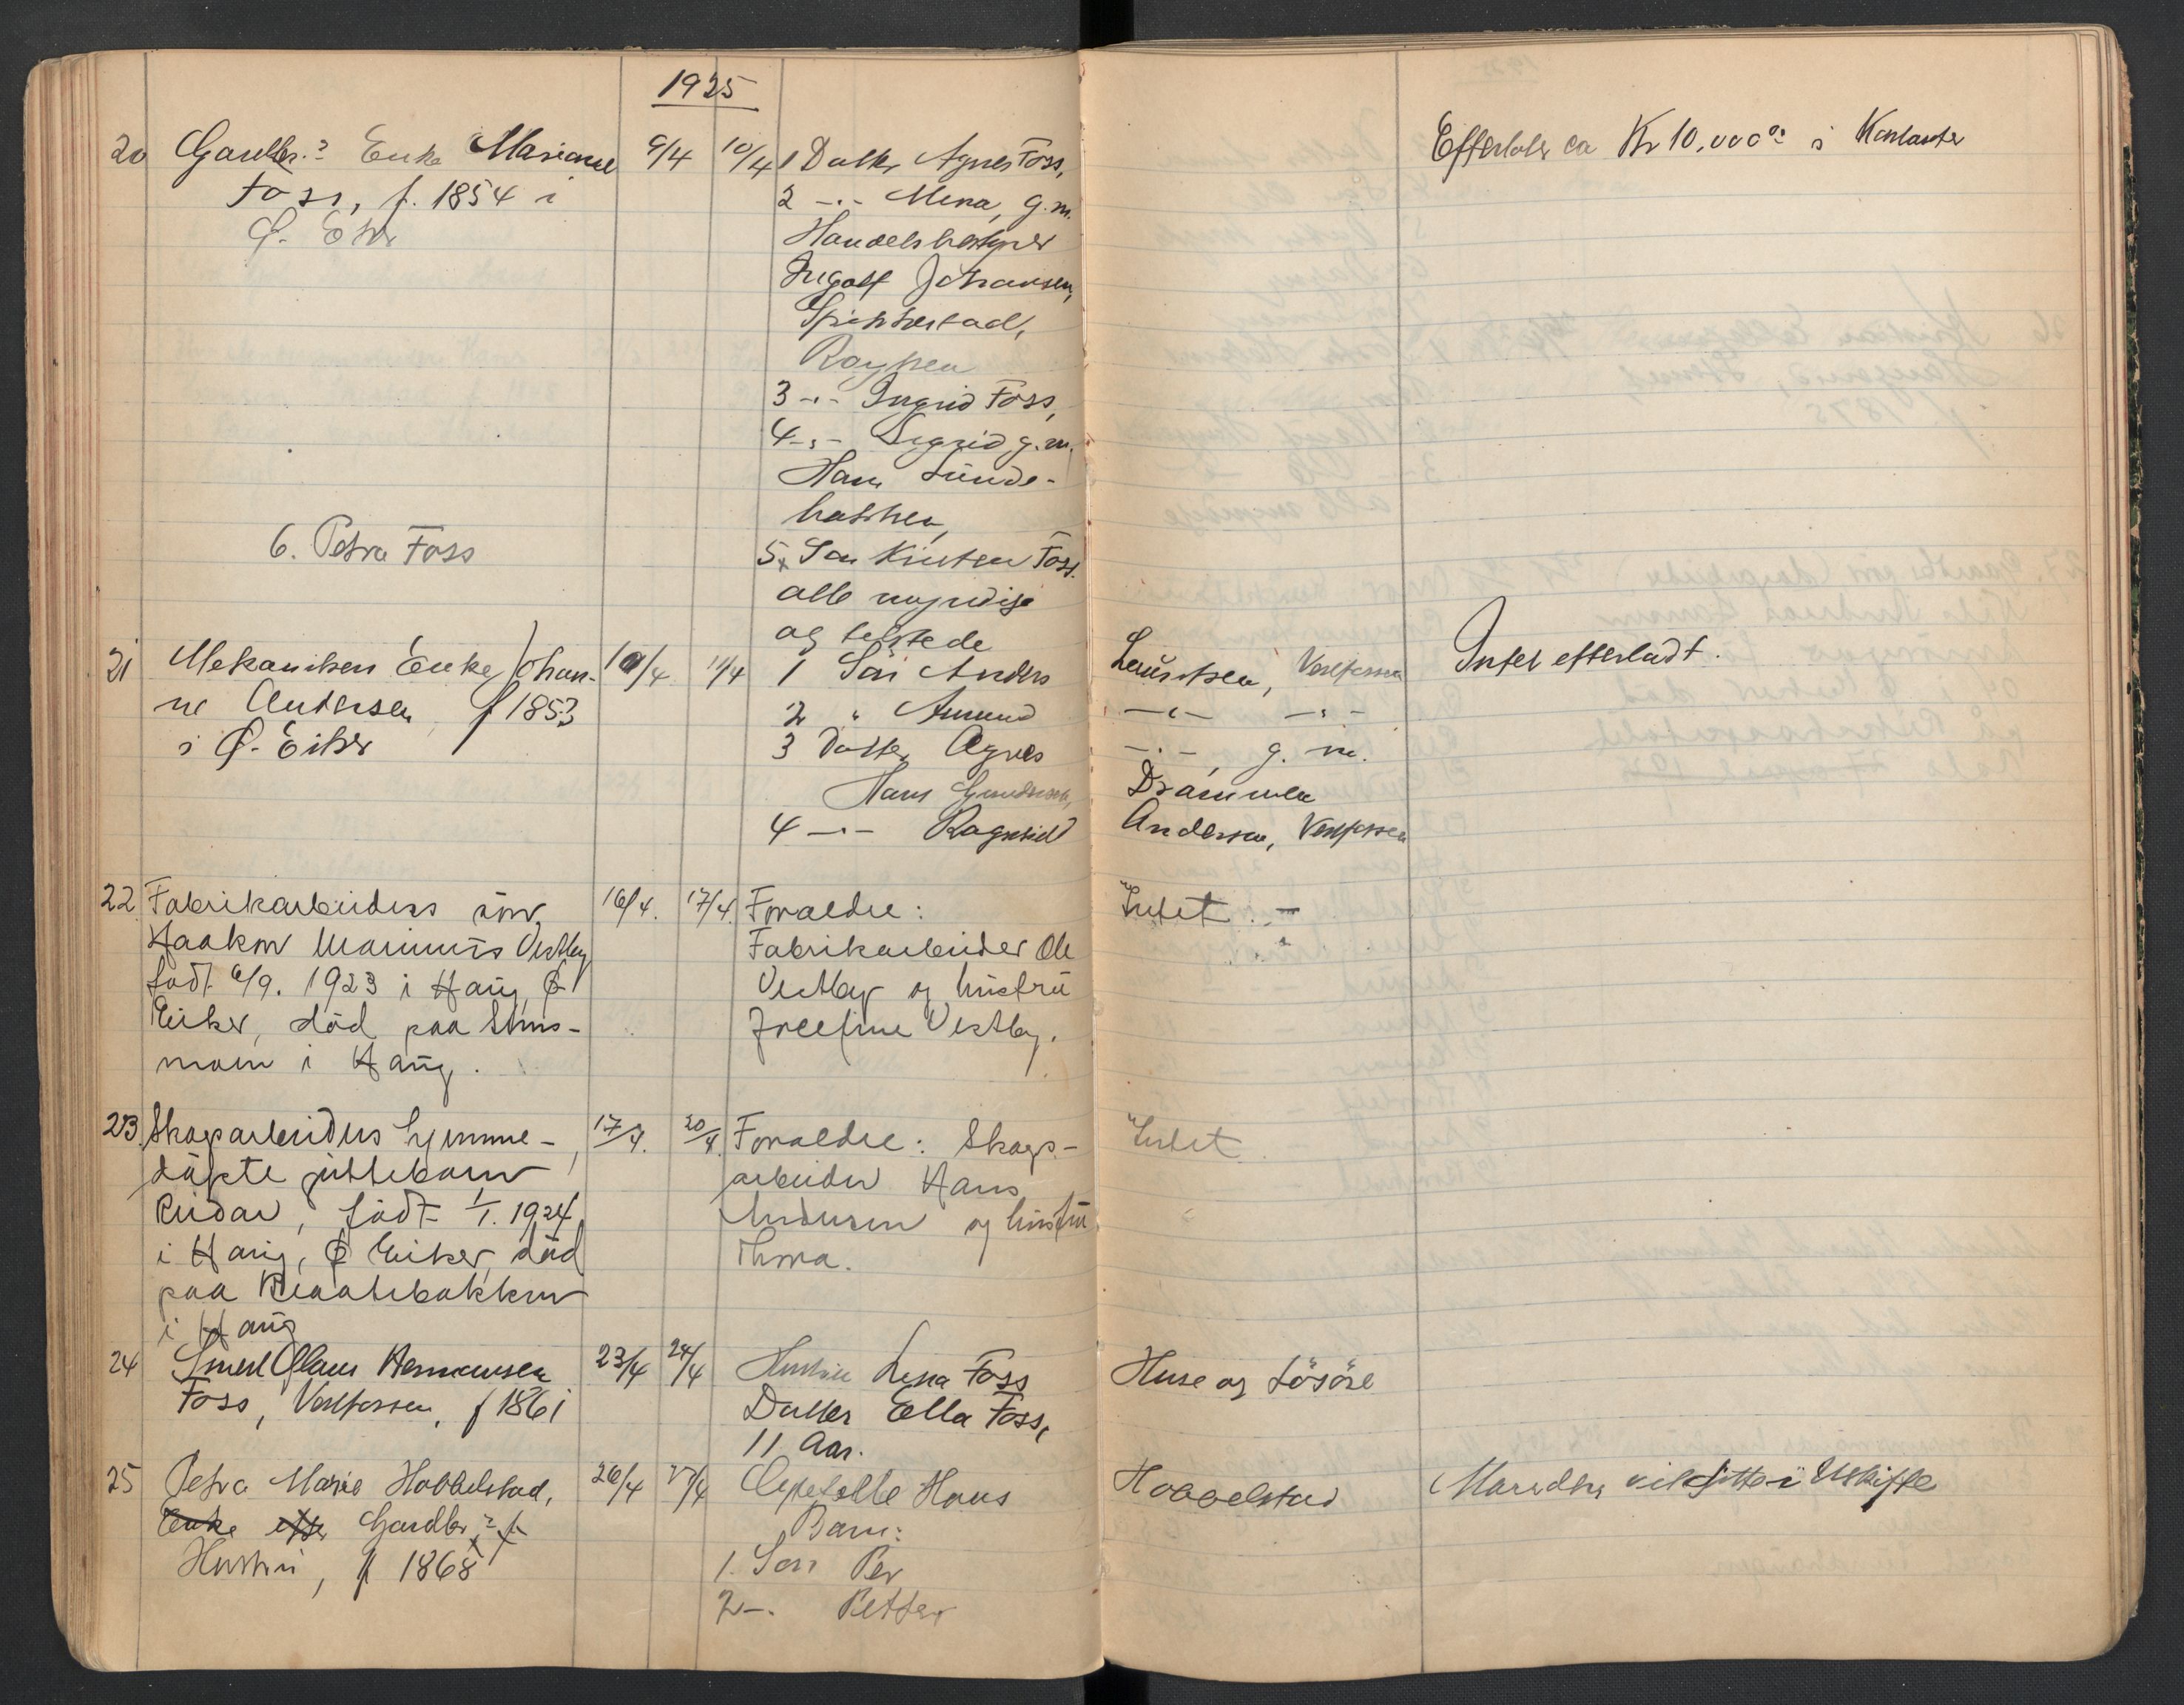 1925
20 Gaardbr.s Enke Mariane 9/4 10/4 1 Datter Agnes Foss,
Foss, f. 1854 i
Ø. Eiker
2 -"- Mena, g.m.
Handelsbestyrer
Ingolf Johansen,
Spikkestad,
Røyken
3 -"- Ingrid Foss,
4 -"- Sigrid g.m.
Hans Sunde-
bakken,
5 Søn Kristen Foss.
alle myndige
og tilstede
6. Petra Foss
Efterlader ca Kr 10.000.00 i Kontanter
21 Mekanikers Enke Johan- 10/4 11/4 1 Søn Anders Lauritsen, Vestfossen Intet efterladt.
ne Andersen f 1853 2 " Amund -"- -"-
i Ø. Eiker 3 Datter Agnes -"-, g. m.
Hans Gundersen, Drammen
4 -"- Ragnhild Andersen, Vestfossen
22 Fabrikarbeiders søn 16/4. 17/4. Foraldre: Intet. -
Haakon Marinius Vestby Fabrikarbeider Ole
født 6/9. 1923 i Haug, Ø Vestby og hustru
Eiker, død paa Stens- Josefine Vestby.
moen i Haug.
23. Skogarbeiders hjemme- 17/4. 20/4. Foraldre: Skogs- Intet
døpte guttebarn arbeider Hans
Reidar, født 1/1. 1924 Andersen og hustru
i Haug, Ø Eiker, død Thora.
paa
i Haug
24 Smed Olaus Hermansen 23/4 24/4 Hustru Lena Foss Huse og Løsøre
Foss, Vestfossen, f 1861 Datter Ella Foss,
11 Aar.
25 Petra Marie Hobbelstad, 26/4 27/4 Ægtefælle Hans Hobbelstad Manden vil sitte i Uskifte
Enke efter Gaardbr.s Barn:
Hustru, f 1868 1. Søn Per
2 -. Petter